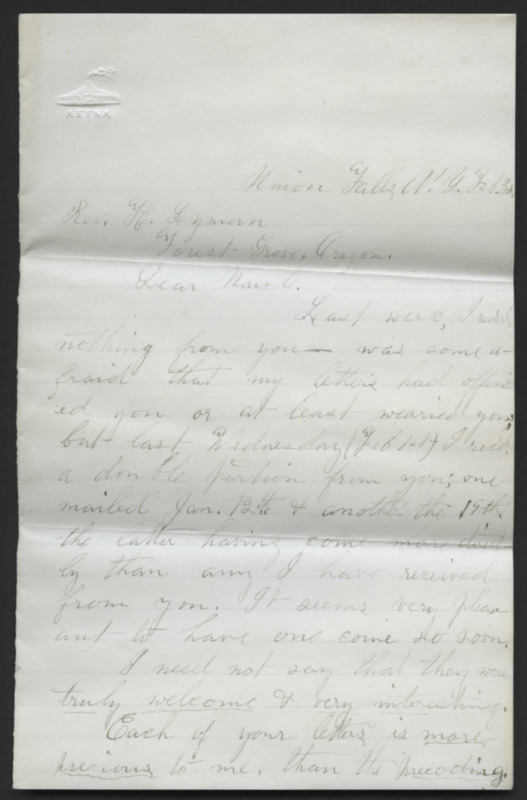 AETNA
Union Falls N. Y. Feb. 3d
Rev. H. Lyman
Forest Grove, Oregon.
Dear Uncle.
Last week, I rec'd
nothing from you — was some a-
fraid that my letters had offend
ed you or at least wearied you,
but last Wednesday (Feb 1st) I rec'd.
a double portion from you; one
mailed Jan. 12th & another the 19th
the latter having come more direct
ly than any I have received
from you. It seems very pleas
ant to have one come so soon.
I need not say that they were
truly welcome & very interesting.
Each of your letters is more
precious to me, than the preceding.